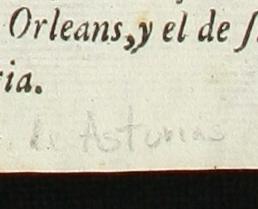 Orleans, y el de
ria.
de Asturias